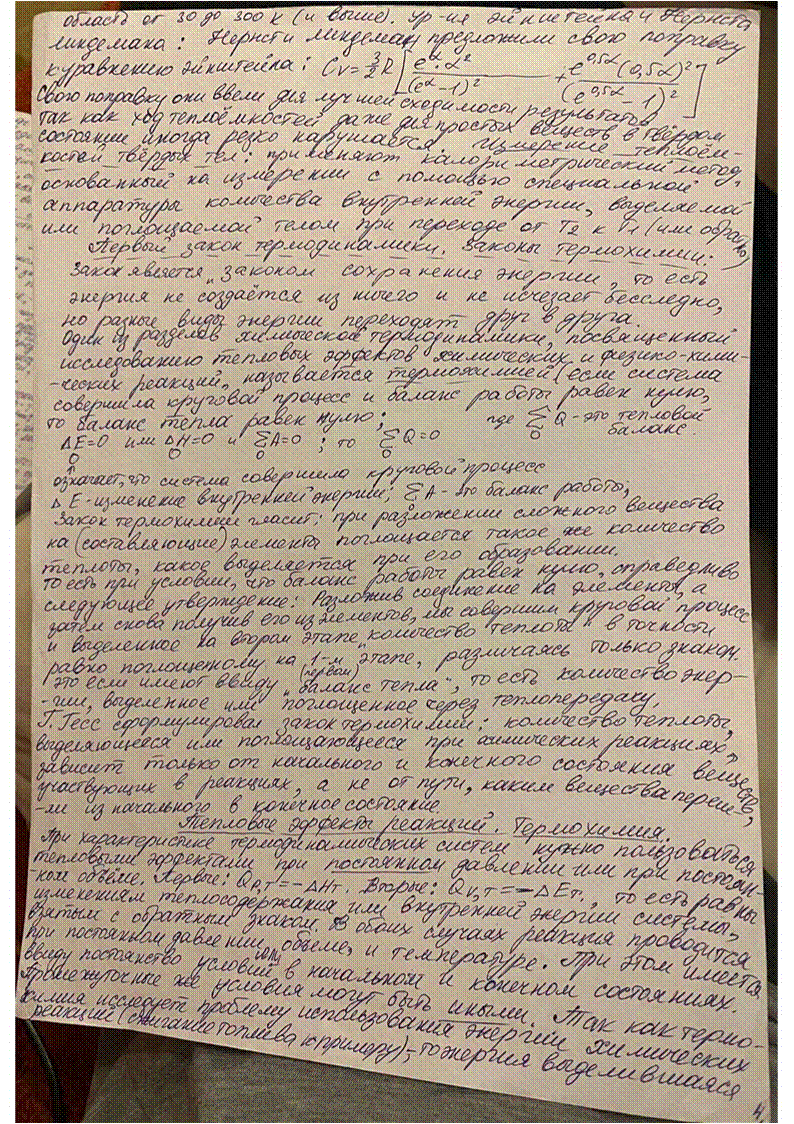 область от 30 до 300 К (и выше). Ур-ия Эйнштейна и Нернста
Линдемана: Нернст и Линдеман предложили свою поправку
к уравнению Эйнштейна: Cv = 3/2 R [ e^α·α² / (e^α − 1)² + e^0,5α (0,5α)² / (e^0,5α − 1)² ]
Свою поправку они ввели для лучшей сходимости результатов
так как ход теплоёмкостей даже для простых веществ в твёрдом
состоянии иногда резко нарушается. Измерение теплоём-
костей твёрдых тел: применяют калориметрический метод,
основанный на измерении с помощью специальной
аппаратуры количества внутренней энергии, выделяемой
или поглощаемой телом при переходе от T2 к T1 (или обратно)
Первый закон термодинамики. Законы термохимии:
Закон является "законом сохранения энергии", то есть
энергия не создаётся из ничего и не исчезает бесследно,
но разные виды энергии переходят друг в друга.
Один из разделов химической термодинамики, посвященный
исследованию тепловых эффектов химических и физико-хими-
-ческих реакций, называется термохимией (если система
совершила круговой процесс и баланс работы равен нулю,
то баланс тепла равен нулю; где Σ Q - это тепловой
0 баланс
ΔE=0 или ΔH=0 и Σ A=0 ; то Σ Q=0
0 0 0 0
означает, что система совершила круговой процесс
ΔE - изменение внутренней энергии; Σ A - это баланс работы;
0
Закон термохимии гласит: при разложении сложного вещества
на (составляющие) элементы поглощается такое же количество
теплоты, какое выделяется при его образовании.
то есть при условии, что баланс работы равен нулю, справедливо
следующее утверждение: Разложив соединение на элементы, а
затем снова получив его из элементов, мы совершим круговой процесс
и выделенное на втором этапе "количество теплоты" в точности
равно поглощенному на 1-м (первом) этапе, различаясь только знаком.
это если имеют ввиду "баланс тепла", то есть количество энер-
-гии, выделенное или поглощенное через теплопередачу.
Г. Гесс сформулировал закон термохимии: количество теплоты,
выделяющееся или поглощающееся при химических реакциях,
зависит только от начального и конечного состояния веществ,
участвующих в реакциях, а не от пути, каким вещества переш-
-ли из начального в конечное состояние.
Тепловые эффекты реакций. Термохимия.
При характеристике термодинамических систем нужно пользоваться
тепловыми эффектами при постоянном давлении или при постоян-
-ном объёме. Первые: Qp,т = −ΔHт. Вторые: Qv,т = −ΔEт, то есть равны
изменениям теплосодержания или внутренней энергии системы,
взятым с обратным знаком. В обоих случаях реакция проводится
при постоянном давлении, объеме, и температуре. При этом имеется
ввиду постоянство условий в начальном и конечном состояниях.
Промежуточные же условия могут быть иными. Так как термо-
химия исследует проблему использования энергии химических
реакций (сжигание топлива к примеру) - то энергия выделившаяся
4.